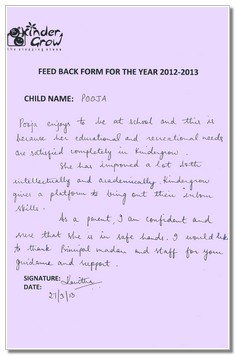 Kinder
Grow
the stepping stone
FEED BACK FORM FOR THE YEAR 2012-2013
CHILD NAME: POOJA
Pooja enjoys to be at school and this is
because her educational and recreational needs
are satisfied completely in Kindergrow.
She has improved a lot both
intellectually and academically. Kindergrow
gives a platform to bring out their inborn
skills.
As a parent, I am confident and
sure that she is in safe hands. I would like
to thank Principal madam and staff for your
guidance and support.
SIGNATURE: Kavitha
DATE:
27/3/13